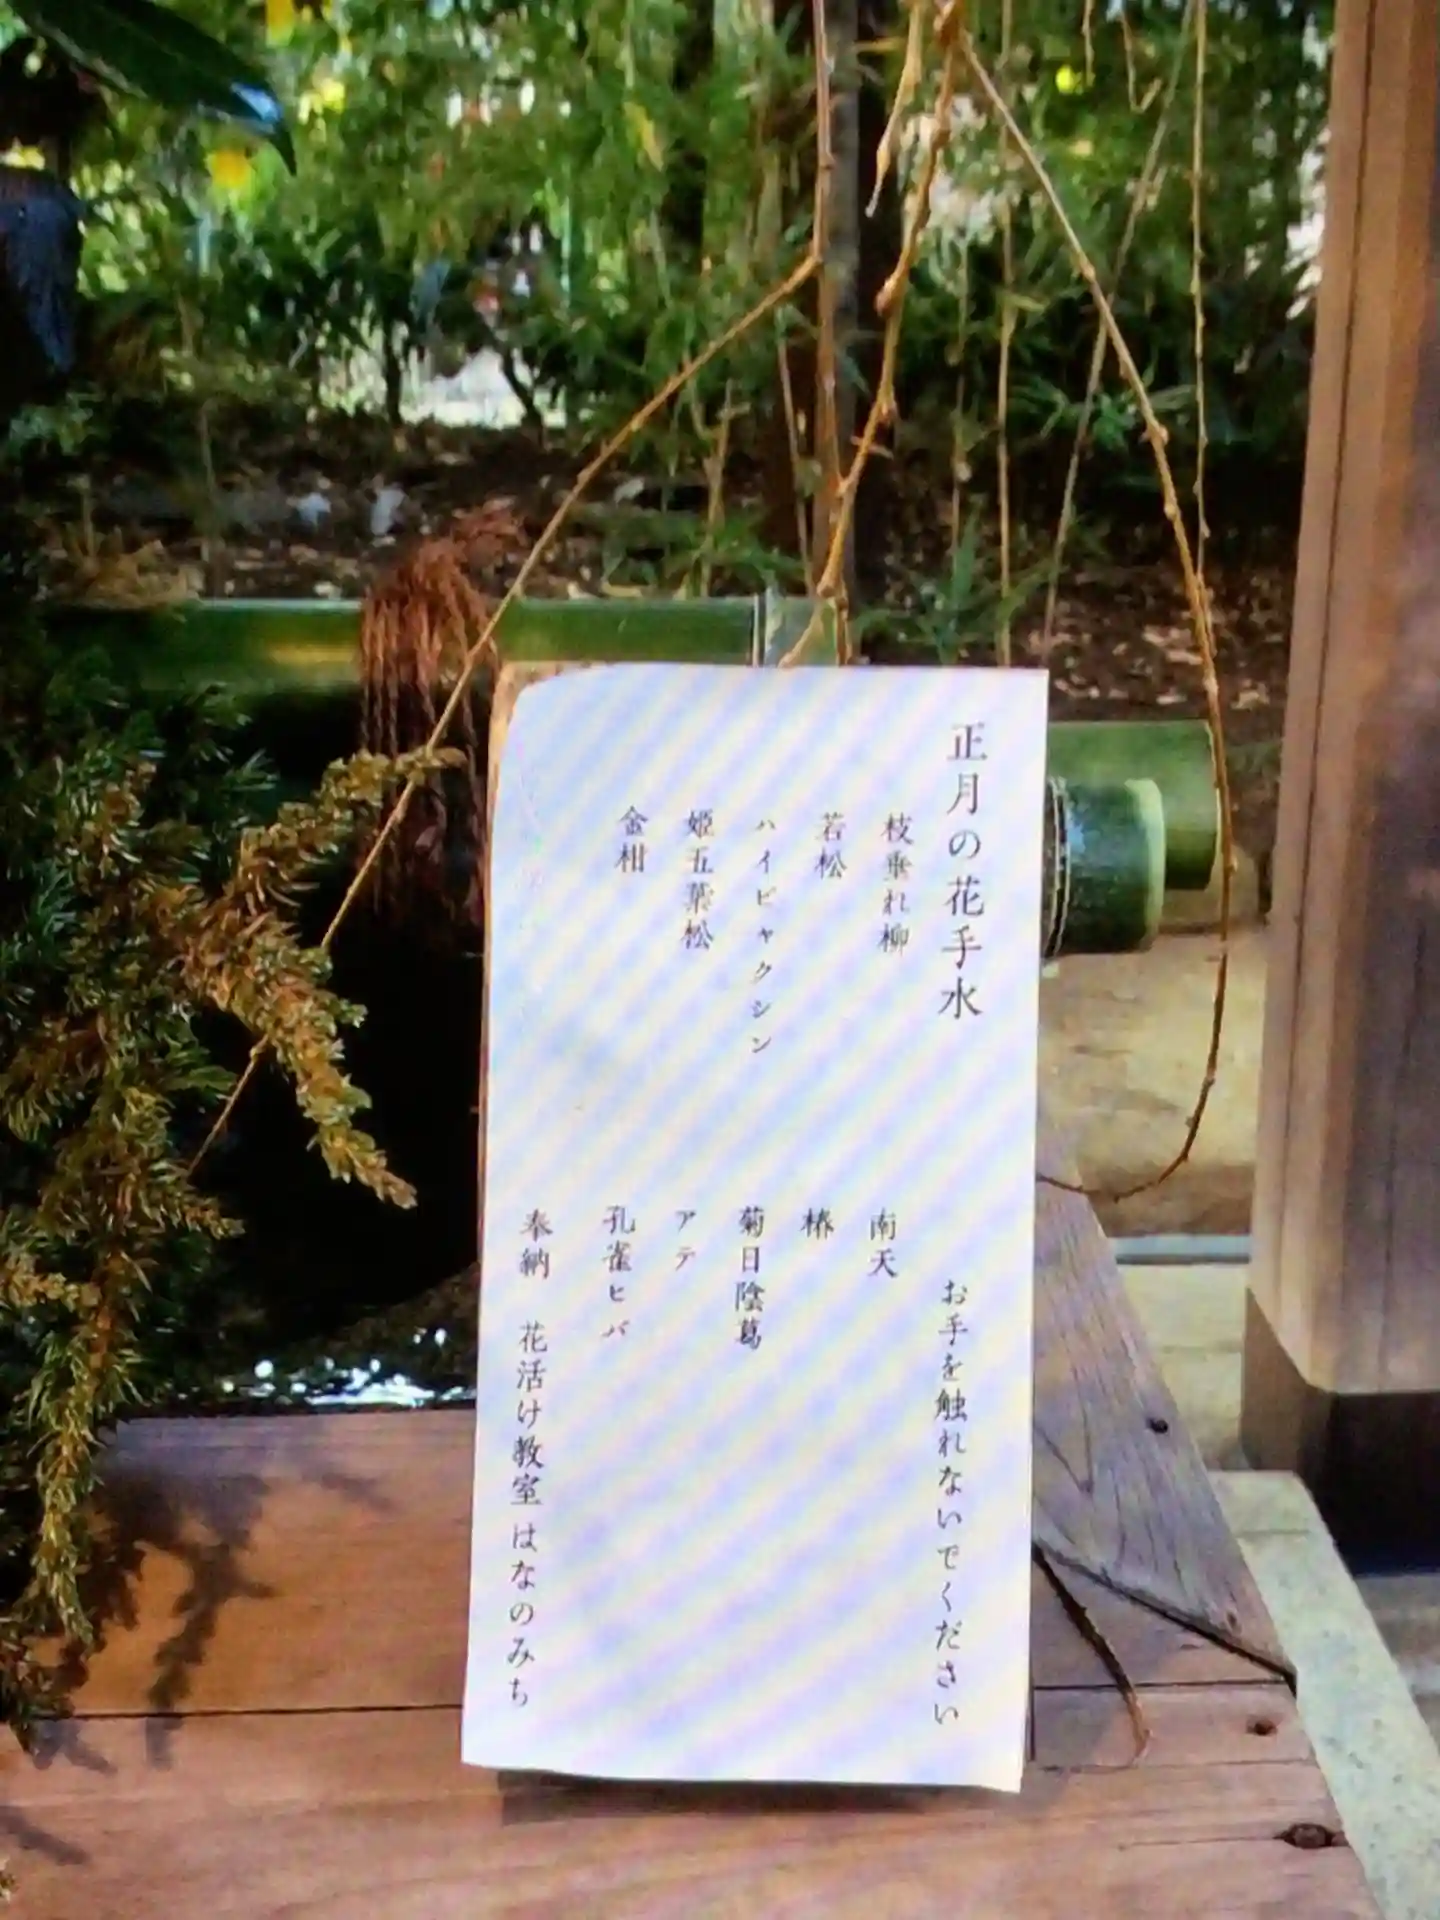 正月の花手水
お手を触れないでください
枝垂れ柳
若松
ハイビャクシン
姫五葉松
金柑
南天
椿
菊日陰葛
アテ
孔雀ヒバ
奉納 花活け教室 はなのみち